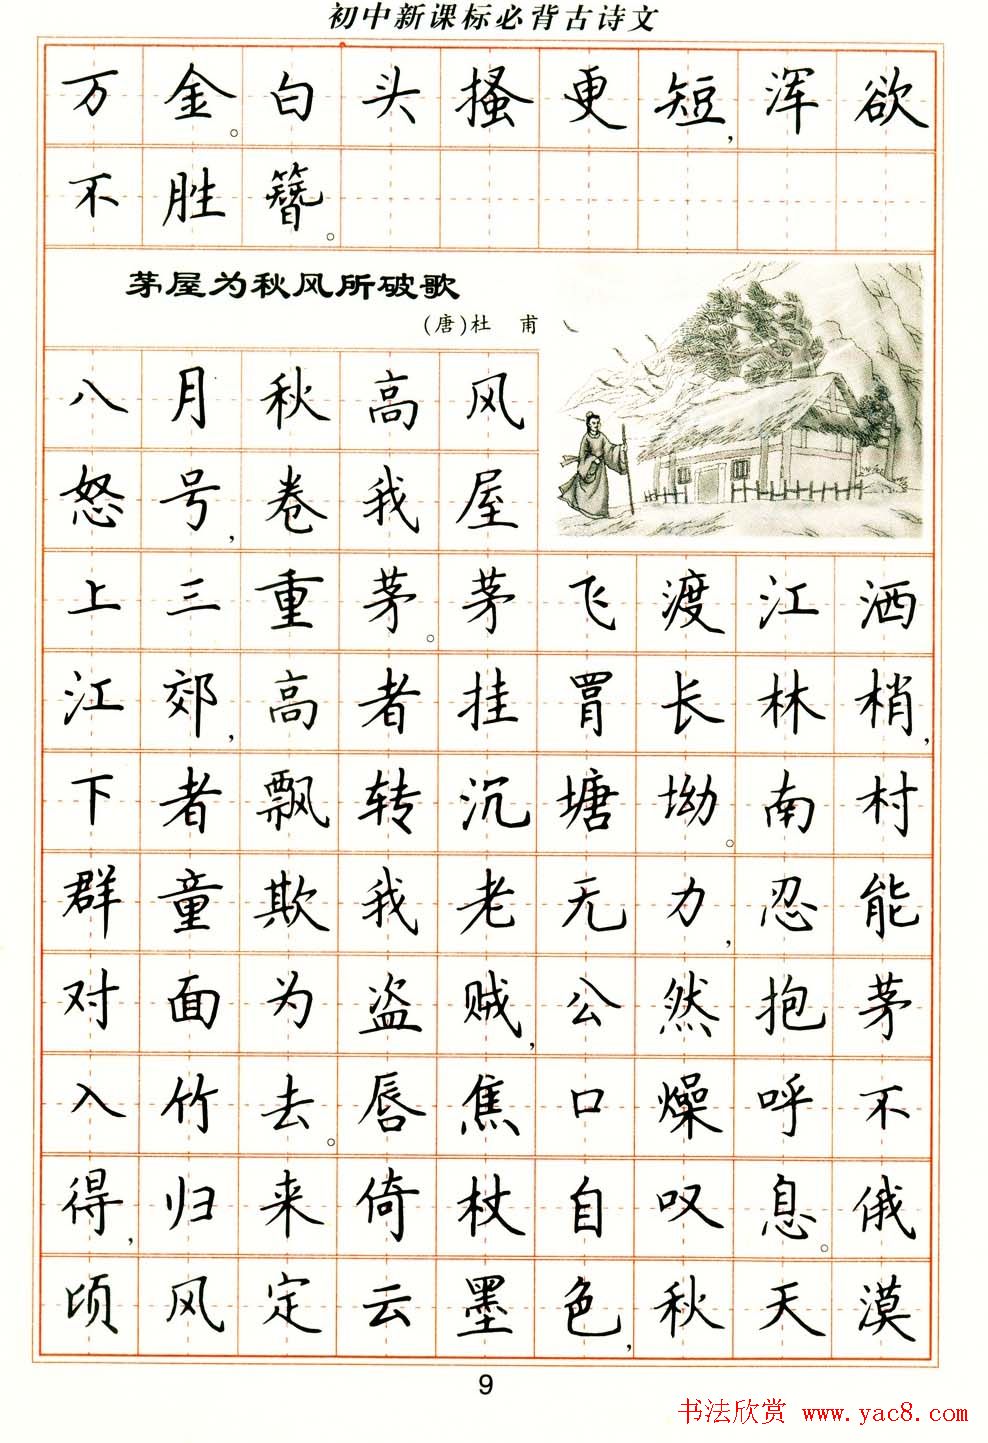 初中新课标必背古诗文
万金。白头搔更短,浑欲
不胜簪。
茅屋为秋风所破歌
(唐)杜 甫
八月秋高风
怒号,卷我屋
上三重茅。茅飞渡江洒
江郊,高者挂罥长林梢,
下者飘转沉塘坳。南村
群童欺我老无力,忍能
对面为盗贼,公然抱茅
入竹去。唇焦口燥呼不
得,归来倚杖自叹息。俄
顷风定云墨色,秋天漠
9
书法欣赏 www.yac8.com